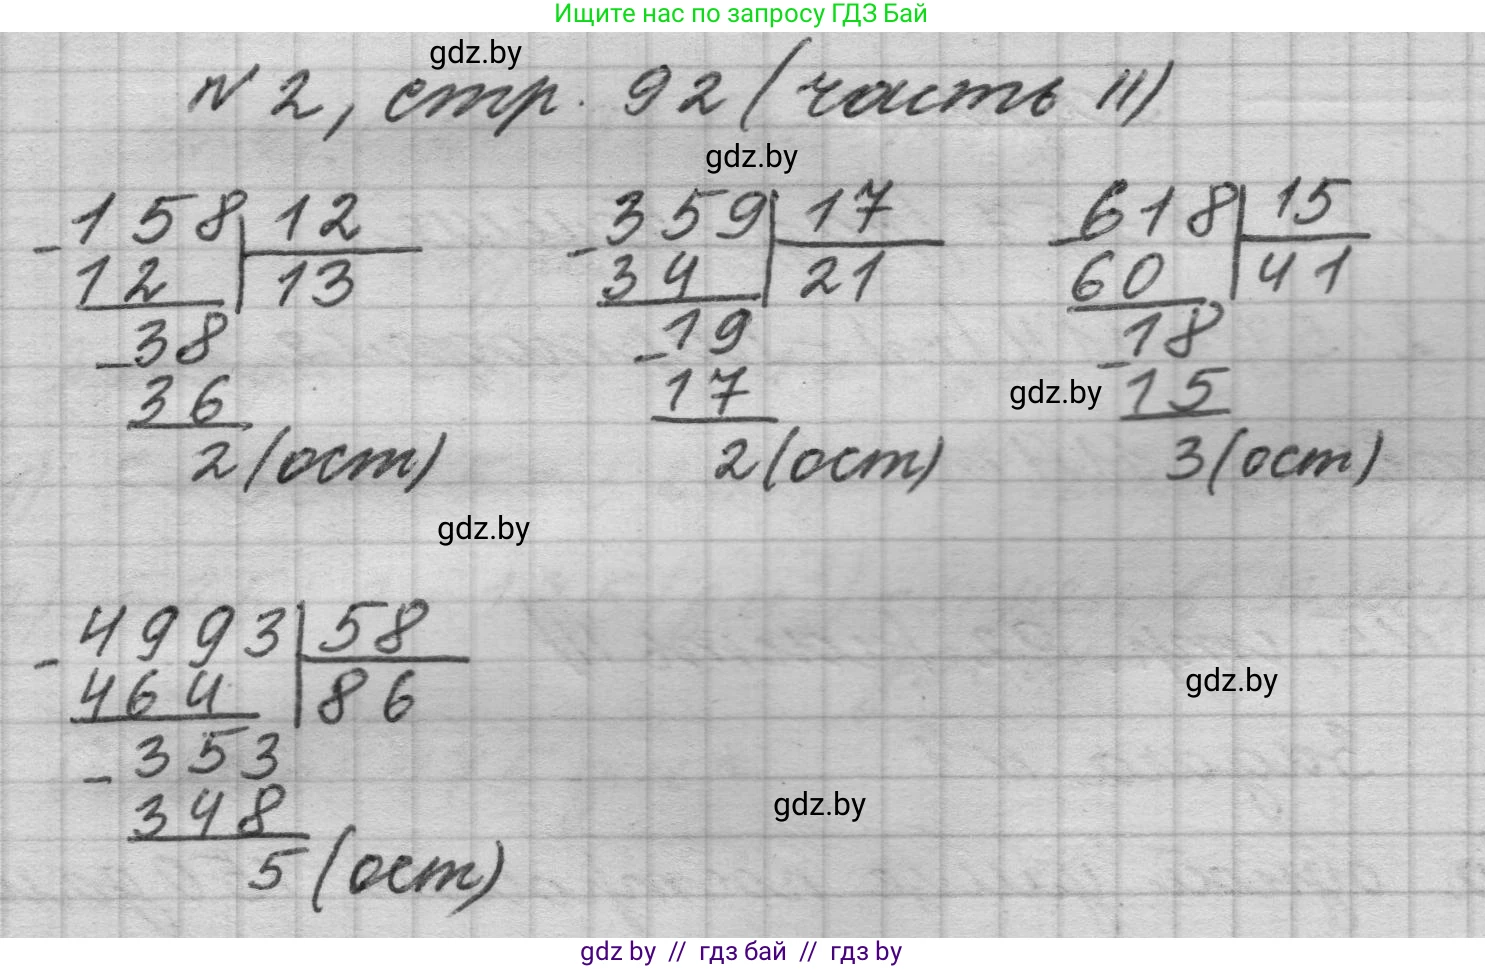 Ищите нас по запросу ГДЗ Бай
gdz.by
№ 2, стр. 92 (часть II)
gdz.by
- 158 | 12
12 | 13
- 38
36
2 (ост)
- 359 | 17
34 | 21
- 19
17
2 (ост)
- 618 | 15
60 | 41
- 18
gdz.by
15
3 (ост)
gdz.by
- 4993 | 58
464 | 86
- 353
348
5 (ост)
gdz.by
gdz.by
gdz by // гдз бай // гдз by